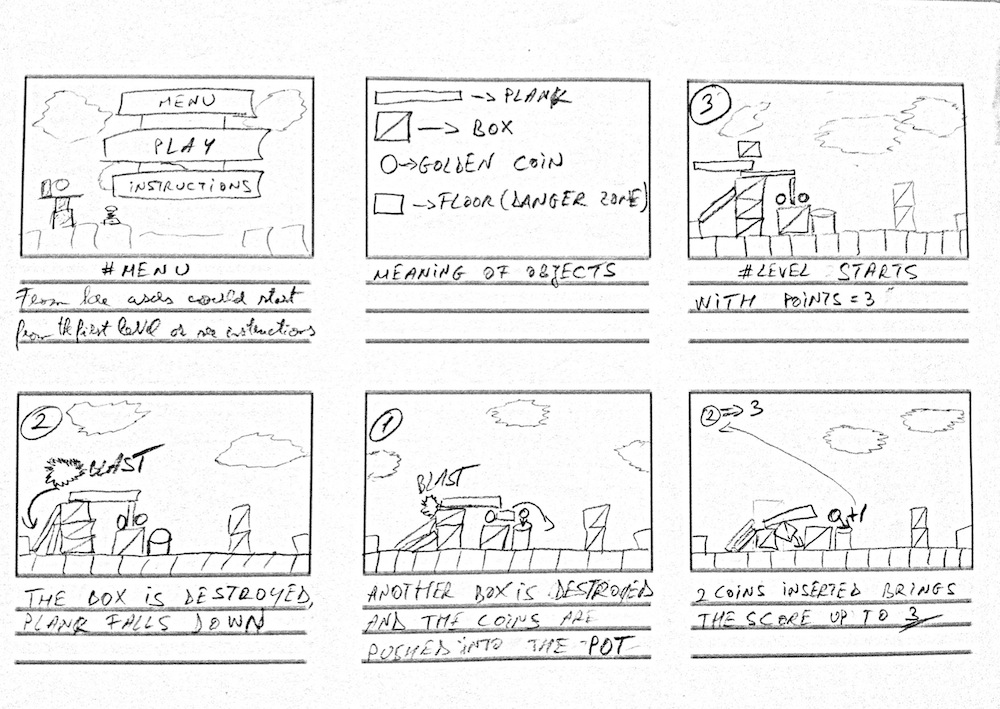 MENU
PLAY
INSTRUCTIONS
#MENU
From here users could start
from the first level or see instructions
→ PLANK
→ BOX
→ GOLDEN COIN
→ FLOOR (DANGER ZONE)
MEANING OF OBJECTS
3
#LEVEL STARTS
WITH POINTS = 3
2
BLAST
THE BOX IS DESTROYED,
PLANK FALLS DOWN
1
BLAST
ANOTHER BOX IS DESTROYED
AND THE COINS ARE
PUSHED INTO THE POT
2 ⇒ 3
+1
2 COINS INSERTED BRINGS
THE SCORE UP TO 3